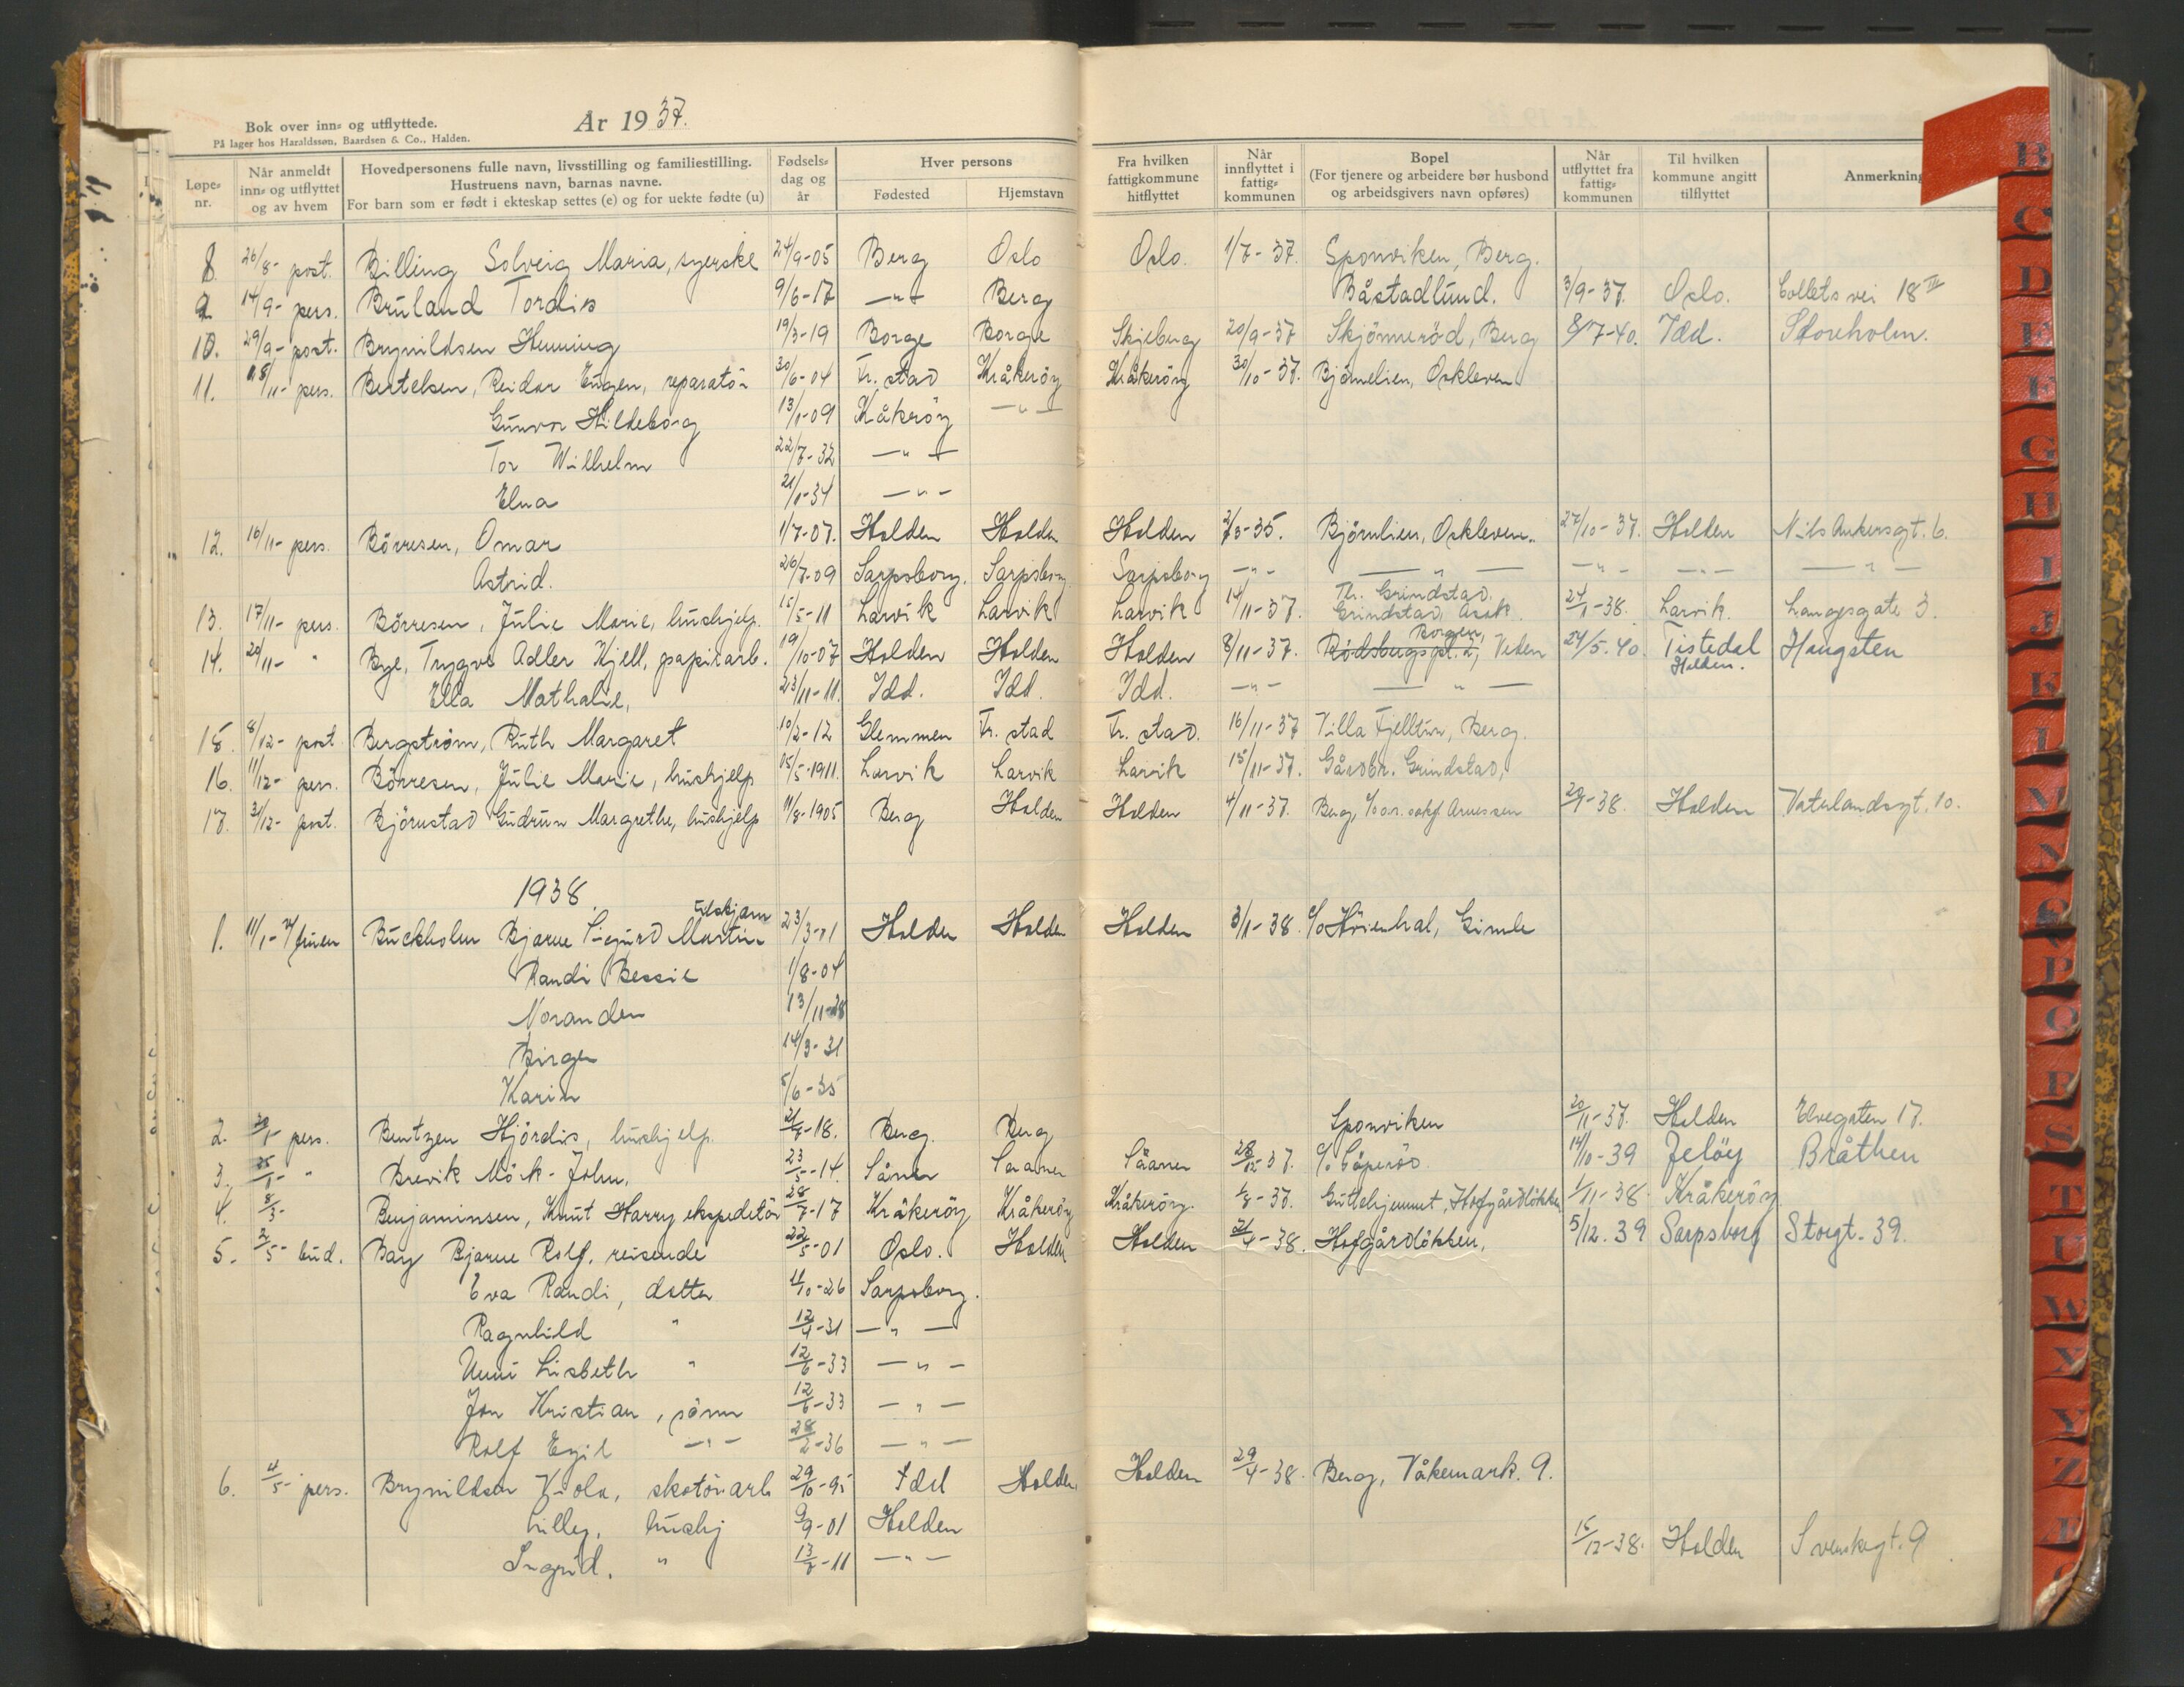 Bok over inn- og utflyttede.
På lager hos Haraldssøn, Baardsen & Co., Halden.
År 1937.
Løpe-nr. | Når anmeldt inn- og utflyttet og av hvem | Hovedpersonens fulle navn, livsstilling og familiestilling. Hustruens navn, barnas navne. For barn som er født i ekteskap settes (e) og for uekte fødte (u) | Fødsels-dag og år | Hver persons Fødested | Hjemstavn | Fra hvilken fattigkommune hitflyttet | Når innflyttet i fattig-kommunen | Bopel (For tjenere og arbeidere bør husbond og arbeidsgivers navn opføres) | Når utflyttet fra fattig-kommunen | Til hvilken kommune angitt tilflyttet | Anmerkning
8. 26/8- post. Billing Solveig Maria, syerske 24/9-05 Berg Oslo Oslo. 1/7-37. Sponviken, Berg.
9. 14/9- pers. Bruland Tordis 9/6-17 —"— Berg Båstadlund. 3/9-37. Oslo. Collets vei 18 IV
10. 29/9- post. Brynildsen Henning 19/3-19 Borge Borge Skjeberg 20/9-37 Skjönneröd, Berg 8/7-40. Idd. Storeholm.
11. 18/11- pers. Bertelsen, Reidar Eugen, reparatör 30/6-04 Fr.stad Kråkeröy Kråkeröy 30/10-37. Björnelien, Oskleven
Gunvor Hildeborg 13/1-09 Kåkröy —"—
Tor Wilhelm 22/7-32 —"—
Elna 21/1-34 —"—
12. 16/11- pers. Börresen, Omar 1/7-07. Halden Halden Halden 2/3-35. Björnlien, Oskleven. 27/10-37. Halden Nils Ankersgt. 6.
Astrid. 26/7-09 Sarpsborg. Sarpsborg Sarpsborg —"— —"— —"— —"— —"—
13. 17/11- pers. Börresen, Julie Marie, hushjelp. 15/5-11 Larvik Larvik Larvik 14/11-37. Th. Grindstad. Grindstad, Asak. 24/1-38. Larvik. Langesgate 3.
14. 20/11- " Bye, Trygve Adler Kjell, papirarb. 19/10-07 Halden Halden Halden 8/11-37. Rødsbergspl. a, Borgen, Veden 24/5.40. Tistedal Halden. Haugsten
Ella Mathalie, 23/11-11. Idd. Idd. Idd. —"— —"—
15. 8/12- post Bergström, Ruth Margaret 10/2-12 Glemmen Fr.stad Fr.stad. 16/11-37 Villa Fjelltun, Berg.
16. 11/12- pers. Börresen, Julie Marie, hushjelp 15/5-1911. Larvik Larvik Larvik 15/11-37. Gårdbr. Grindstad,
17. 31/12- post. Björnstad Gudrun Margrethe, hushjelp 11/8-1905 Berg Halden Halden 4/11-37. Berg, c/o o.r. sakf. Arnessen 29/1-38. Halden Vaterlandsgt. 10.
1938.
1. 11/1- v/ fruen Buckholm Bjarne Sigurd Martin 23/3-01 Halden Halden Halden 3/1-38. c/o Hörenhal, Gimle
Randi Bessie 1/8-04
Noranden 13/11-28
Birger 14/3-31
Karin 5/6-35
2. 20/1- pers. Bentzen Hjördis, hushjelp. 21/8-18. Berg. Berg Sponviken 20/11-37. Halden Elvegaten 17.
3. 25/1- " Brevik Mörk-John. 23/5-14. Såner Saaner Såaner 28/12-37. c/o Gåperöd. 14/10-39 Jeløy Bråthen
4. 8/3- Benjaminsen, Knut Harry ekspeditör 28/7-17 Kråkeröy Kråkeröy Kråkeröy. 1/8-37. Guttehjemmet, Hofgårdlökken 1/11-38. Kråkeröy
5. 2/5- bud. Bay Bjarne Rolf, reisende 22/5-01 Oslo. Halden Halden 21/4-38. Hofgårdlökken, 5/12.39 Sarpsborg Storgt. 39.
Eva Randi, datter 11/10-26 Sarpsborg.
Ragnhild " 12/4-31 —"—
Unni Lisbeth " 12/6-33 —"—
Jon Kristian, sönn 12/6-33 —"—
Rolf Egil —"— 28/2-36 —"—
6. 4/5- pers. Brynildsen Viola, skotöiarb 29/10-95 Idd Halden. Halden 29/4-38. Berg, Våkemark. 9.
Lilly, hushj 9/9-01 Halden
Ingrid. " 13/7-11 —"— 15/12-38. Halden Svenskegt. 9
B
C
D
E
F
G
H
I
J
K
L
M
N
O
P
Q
R
S
T
U
W
X
Y
Z
Æ